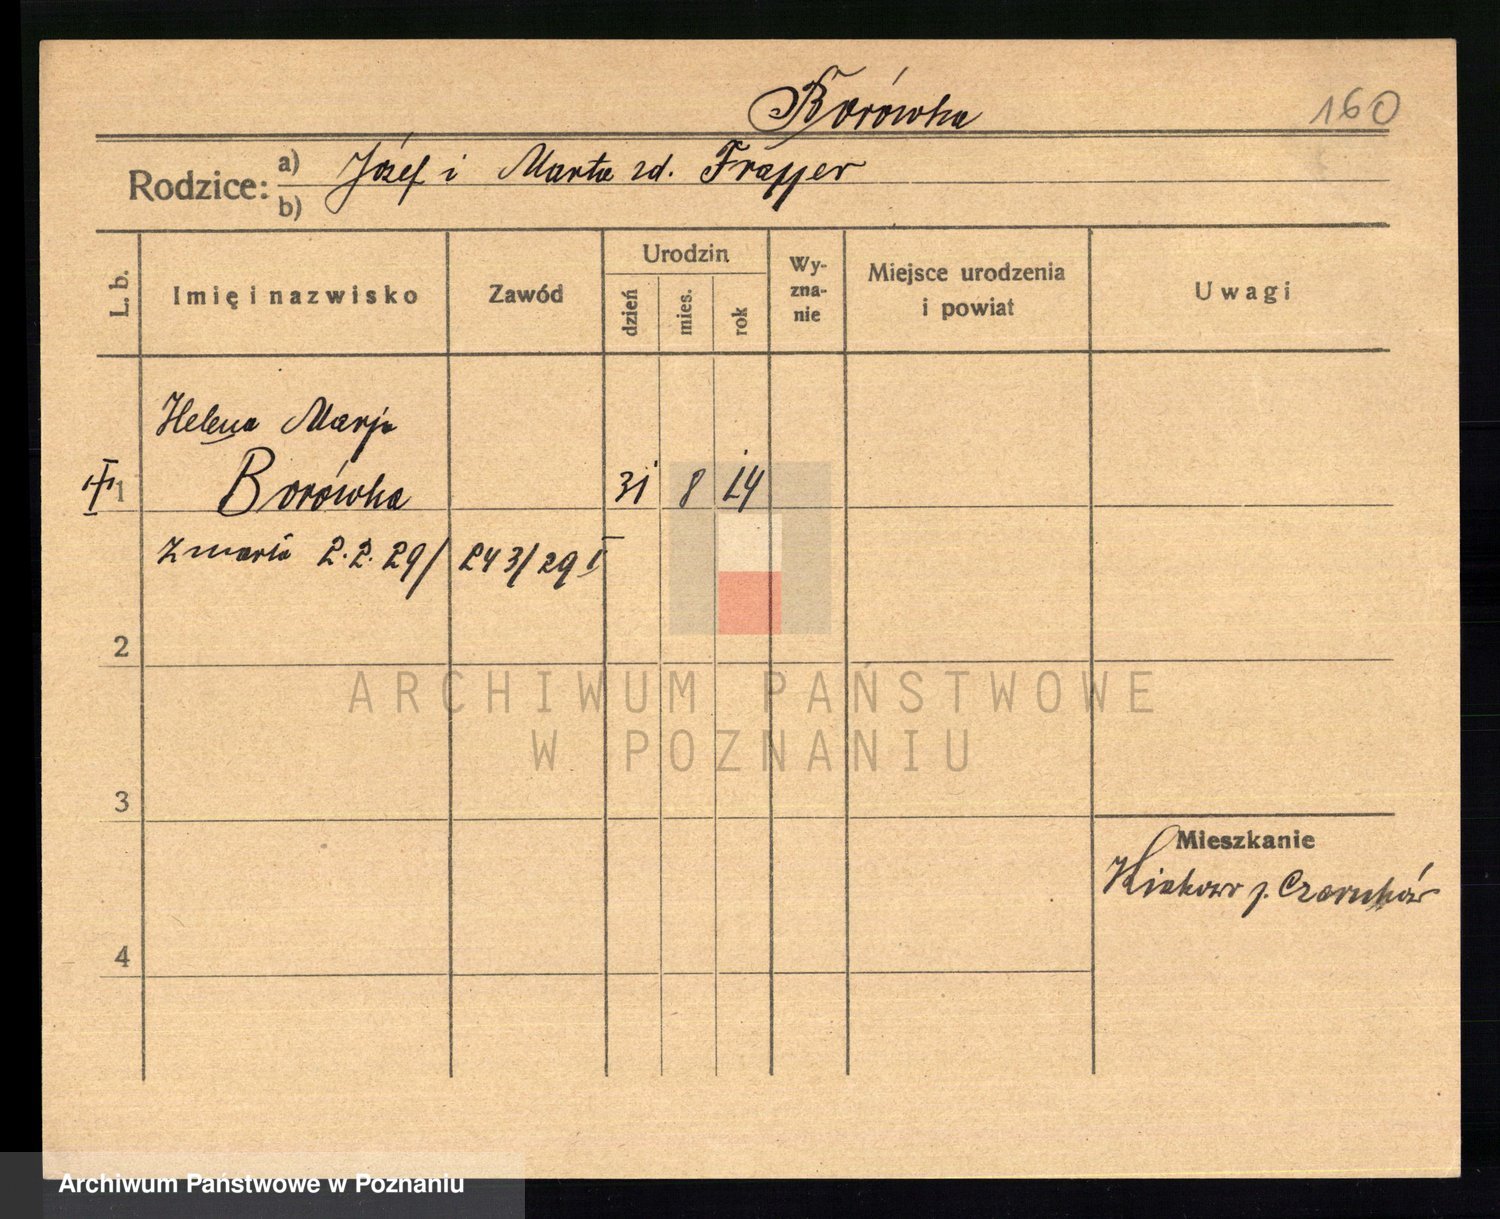 Borówka
160
Rodzice:
a) Józef i Marta zd. Frapper
b)
L. b.
Imię i nazwisko
Zawód
Urodzin
dzień
mies.
rok
Wy-
zna-
nie
Miejsce urodzenia
i powiat
Uwagi
Helena Marja
1 Borówka 31 8 14
zmarła 2.2.29/ 243/29 I
2
3
4
Mieszkanie
p. Czarnków
ARCHIWUM PAŃSTWOWE
W POZNANIU
Archiwum Państwowe w Poznaniu